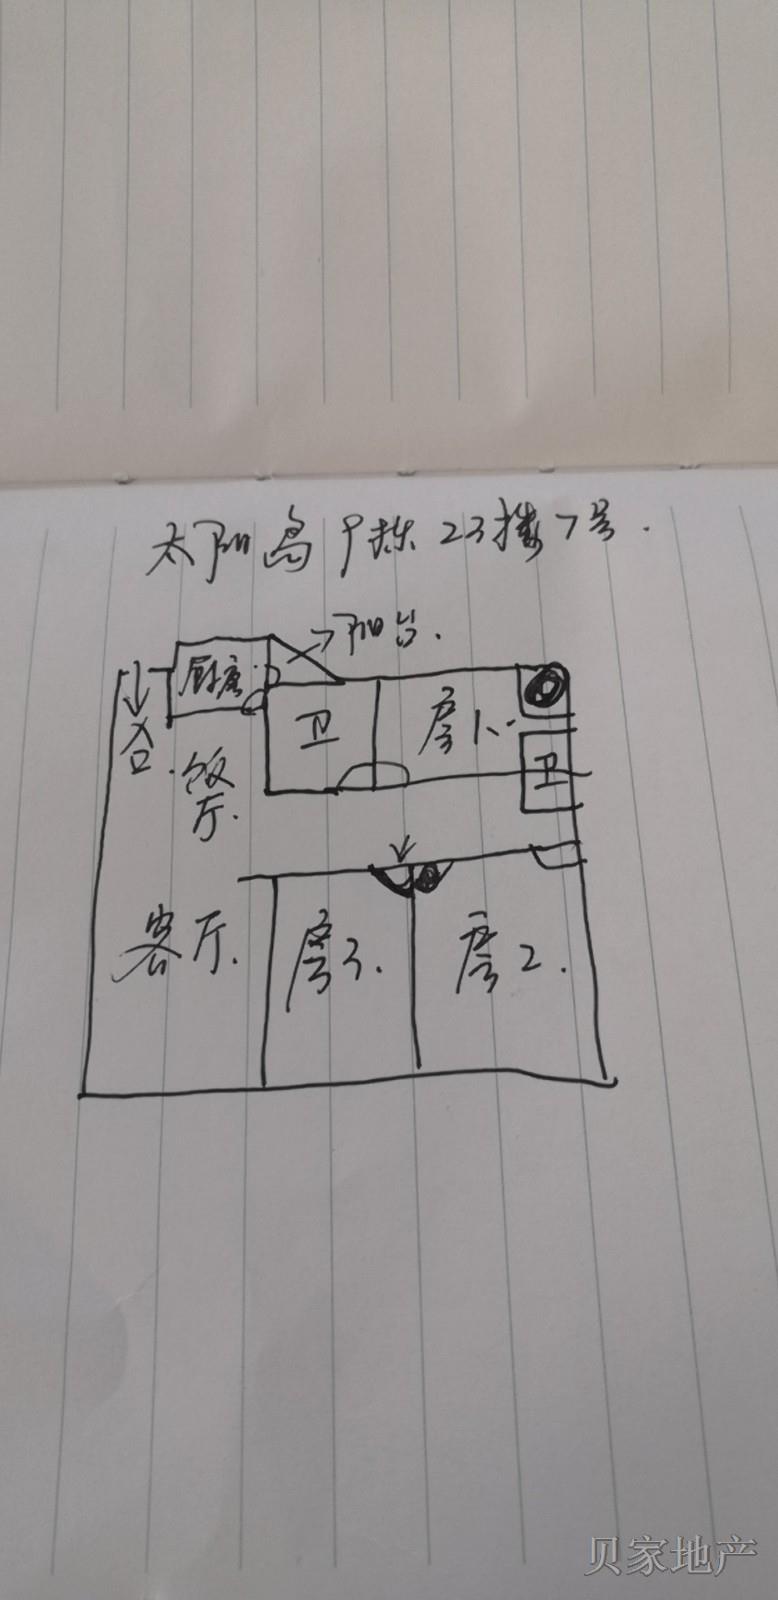 太阳岛 栋 23楼7号.
→阳台.
厨房
合.
饭厅.
卫
房1.
卫
客厅.
房3.
房2.
贝家地产